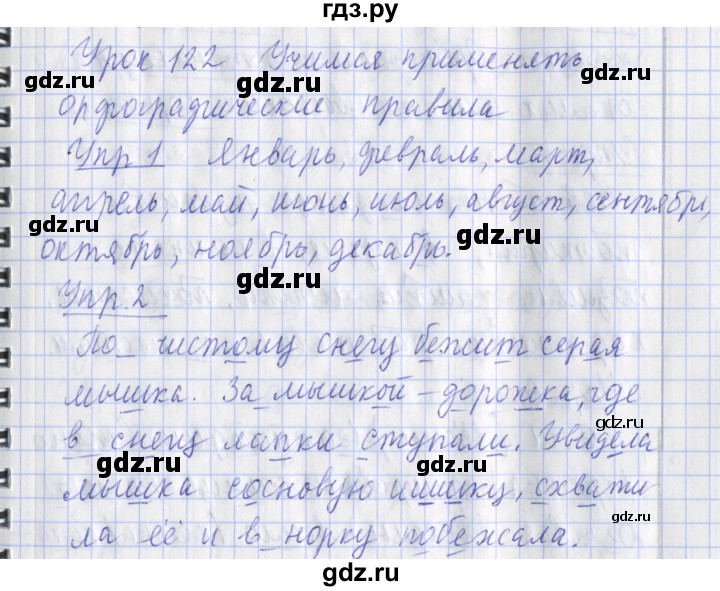 гдз.ру
Урок 122 Учимся применять
орфографические правила
Упр 1 Январь, февраль, март,
апрель, май, июнь, июль, август, сентябрь,
октябрь, ноябрь, декабрь.
Упр. 2
По чистому снегу бежит серая
мышка. За мышкой – дорожка, где
в снегу лапки ступали. Увидела
мышка сосновую шишку, схвати-
ла её и в норку побежала.
gdz.ru
gdz.ru
gdz.ru
gdz.ru
gdz.ru
gdz.ru
gdz.ru
gdz.ru
gdz.ru
gdz.ru
gdz.ru
gdz.ru
gdz.ru